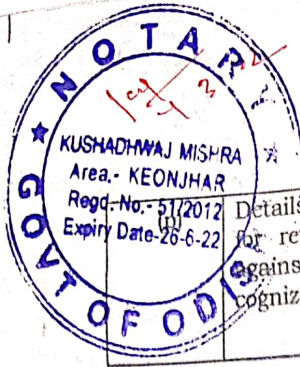 NOTARY
KUSHADHWAJ MISHRA
Area.- KEONJHAR
Regd. No.- 51/2012
Expiry Date-26-6-22
GOVT OF ODIS
Details
for re
against
cogniz